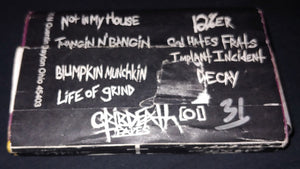 Not in My House
Bangin N' Bangin
Blumpkin Munchkin
Life of Grind
God Hates Frats
Implant Incident
Decay
Gripdeath
Tapes
[01]
31
Dayton Ohio 45403